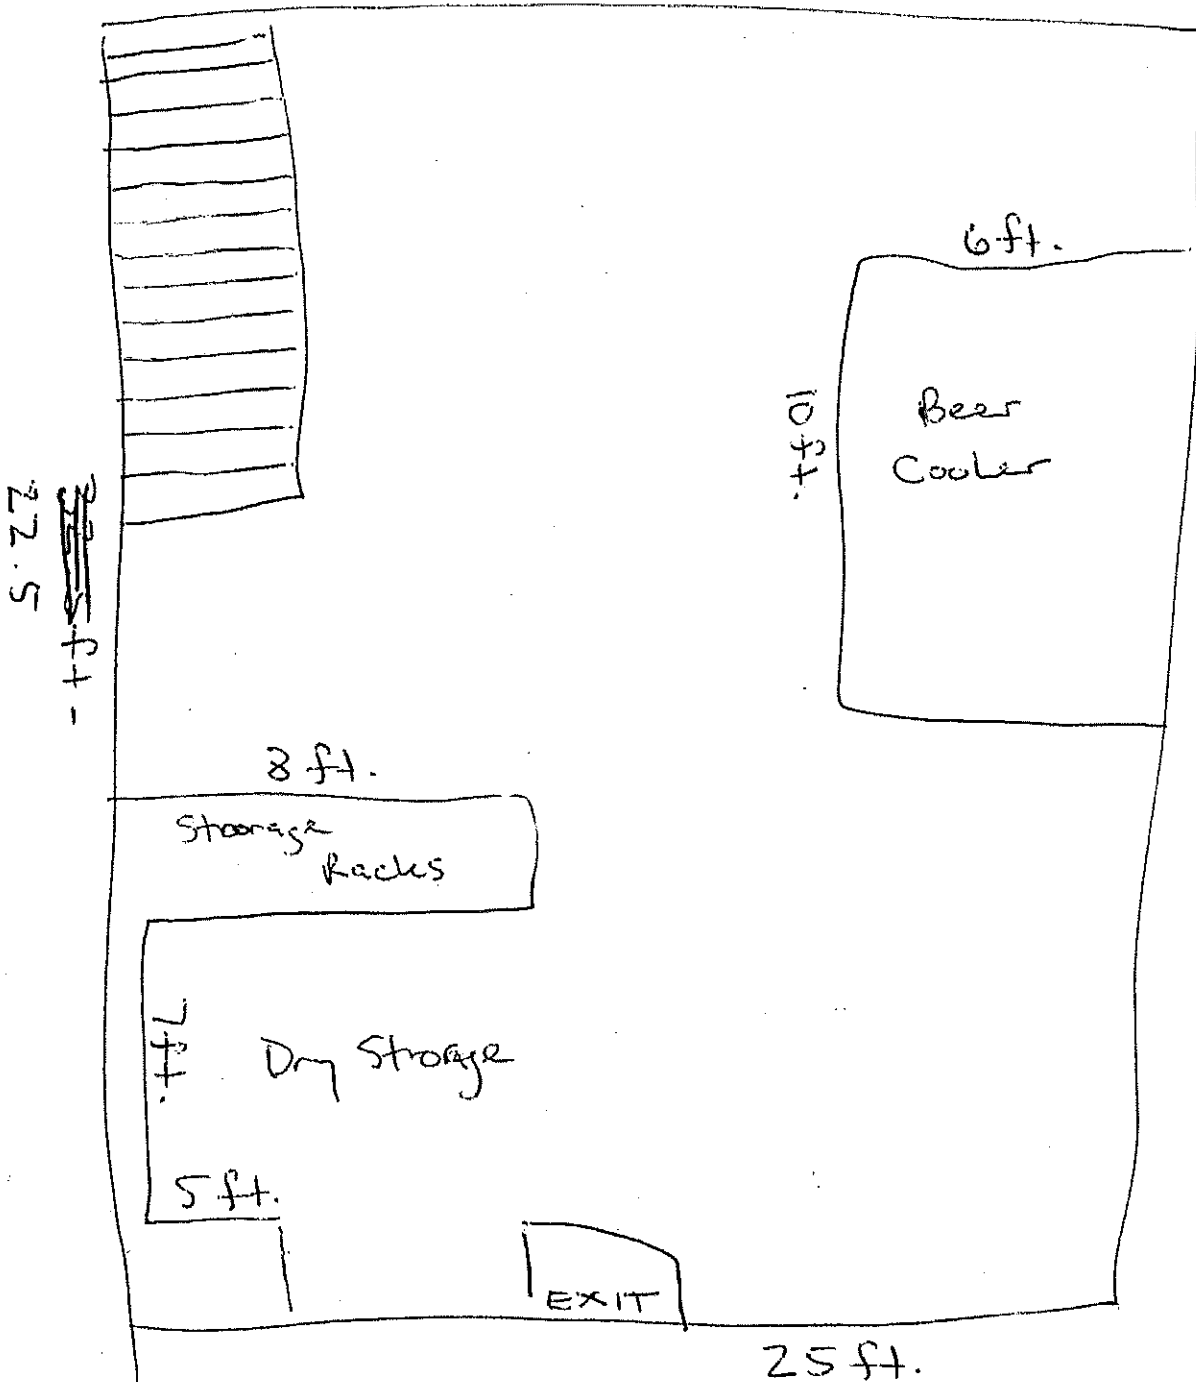 6 ft.
10 ft.
Beer
Cooler
22.5
ft.
8 ft.
Stoorage
Racks
7 ft.
Dry Strorage
5 ft.
EXIT
25 ft.